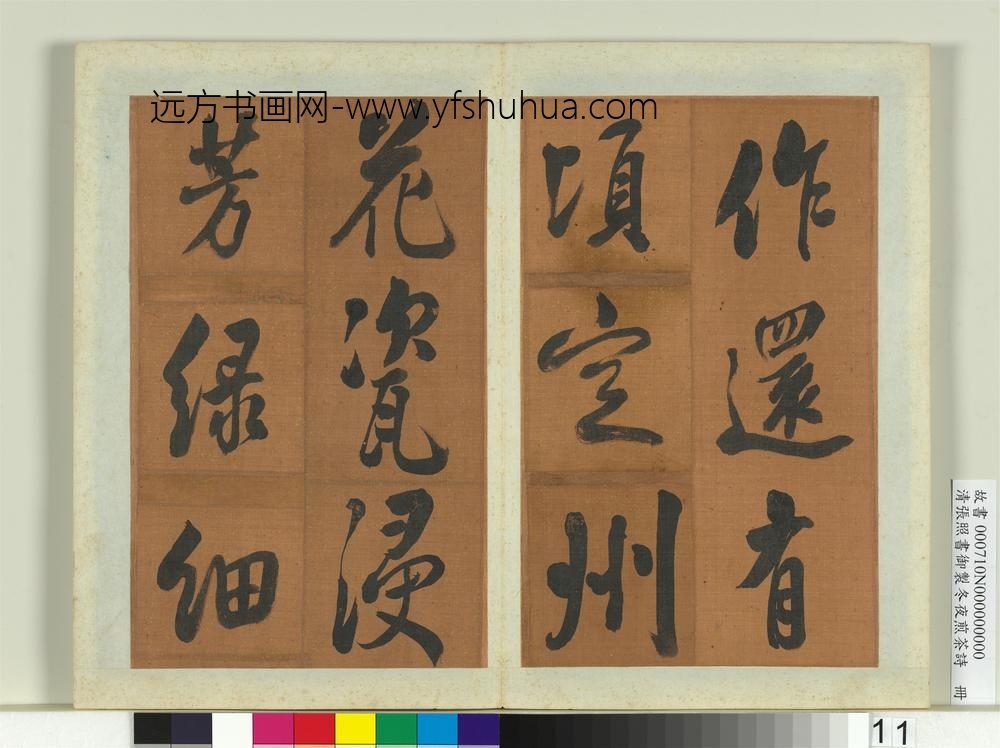 远方书画网-www.yfshuhua.com
作還有
頃定州
花瓷浸
芳綠細
故書 000710N000000000
清張照書御製冬夜煎茶詩 冊
11